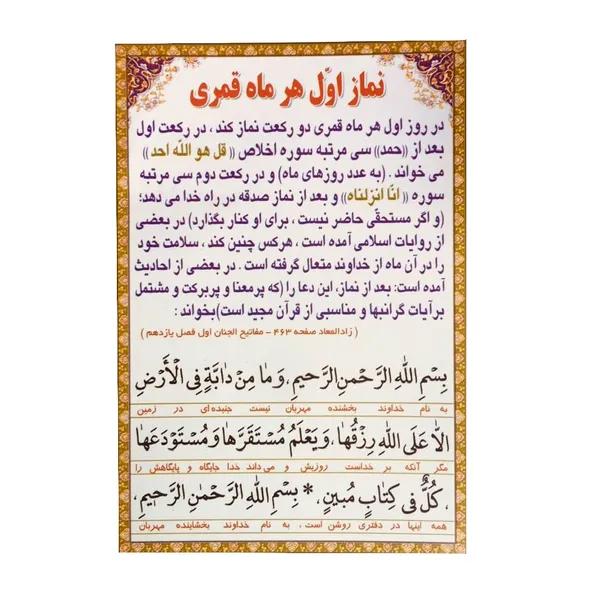 نماز اوّل هر ماه قمری
در روز اول هر ماه قمری دو رکعت نماز کند ، در رکعت اول
بعد از ((حمد)) سی مرتبه سوره اخلاص (( قل هو اللّه احد ))
می خواند . (به عدد روزهای ماه) و در رکعت دوم سی مرتبه
سوره (( انّا انزلناه)) و بعد از نماز صدقه در راه خدا می دهد؛
(و اگر مستحقّی حاضر نیست ، برای او کنار بگذارد) در بعضی
از روایات اسلامی آمده است ، هرکس چنین کند ، سلامت خود
را در آن ماه از خداوند متعال گرفته است . در بعضی از احادیث
آمده است: بعد از نماز، این دعا را (که پرمعنا و پربرکت و مشتمل
بر آیات گرانبها و مناسبی از قرآن مجید است) بخواند :
( زادالمعاد صفحه ۴۶۳ - مفاتیح الجنان اول فصل یازدهم )
بِسْمِ اللهِ الرَّحْمنِ الرَّحیمِ ، وَ مَا مِنْ دَابَّةٍ فِی الْأَرْضِ
به نام خداوند بخشنده مهربان نیست جنبده‌ای در زمین
اِلّا عَلَی اللهِ رِزْقُهَا، وَ یَعْلَمُ مُسْتَقَرَّهَا وَ مُسْتَوْدَعَهَا
مگر آنکه بر خداست روزیش و می داند خدا جایگاه و پایگاهش را
، کُلٌّ فی کِتَابٍ مُبینٍ ، * بِسْمِ اللهِ الرَّحْمٰنِ الرَّحیمِ ،
همه اینها در دفتری روشن است ، به نام خداوند بخشاینده مهربان